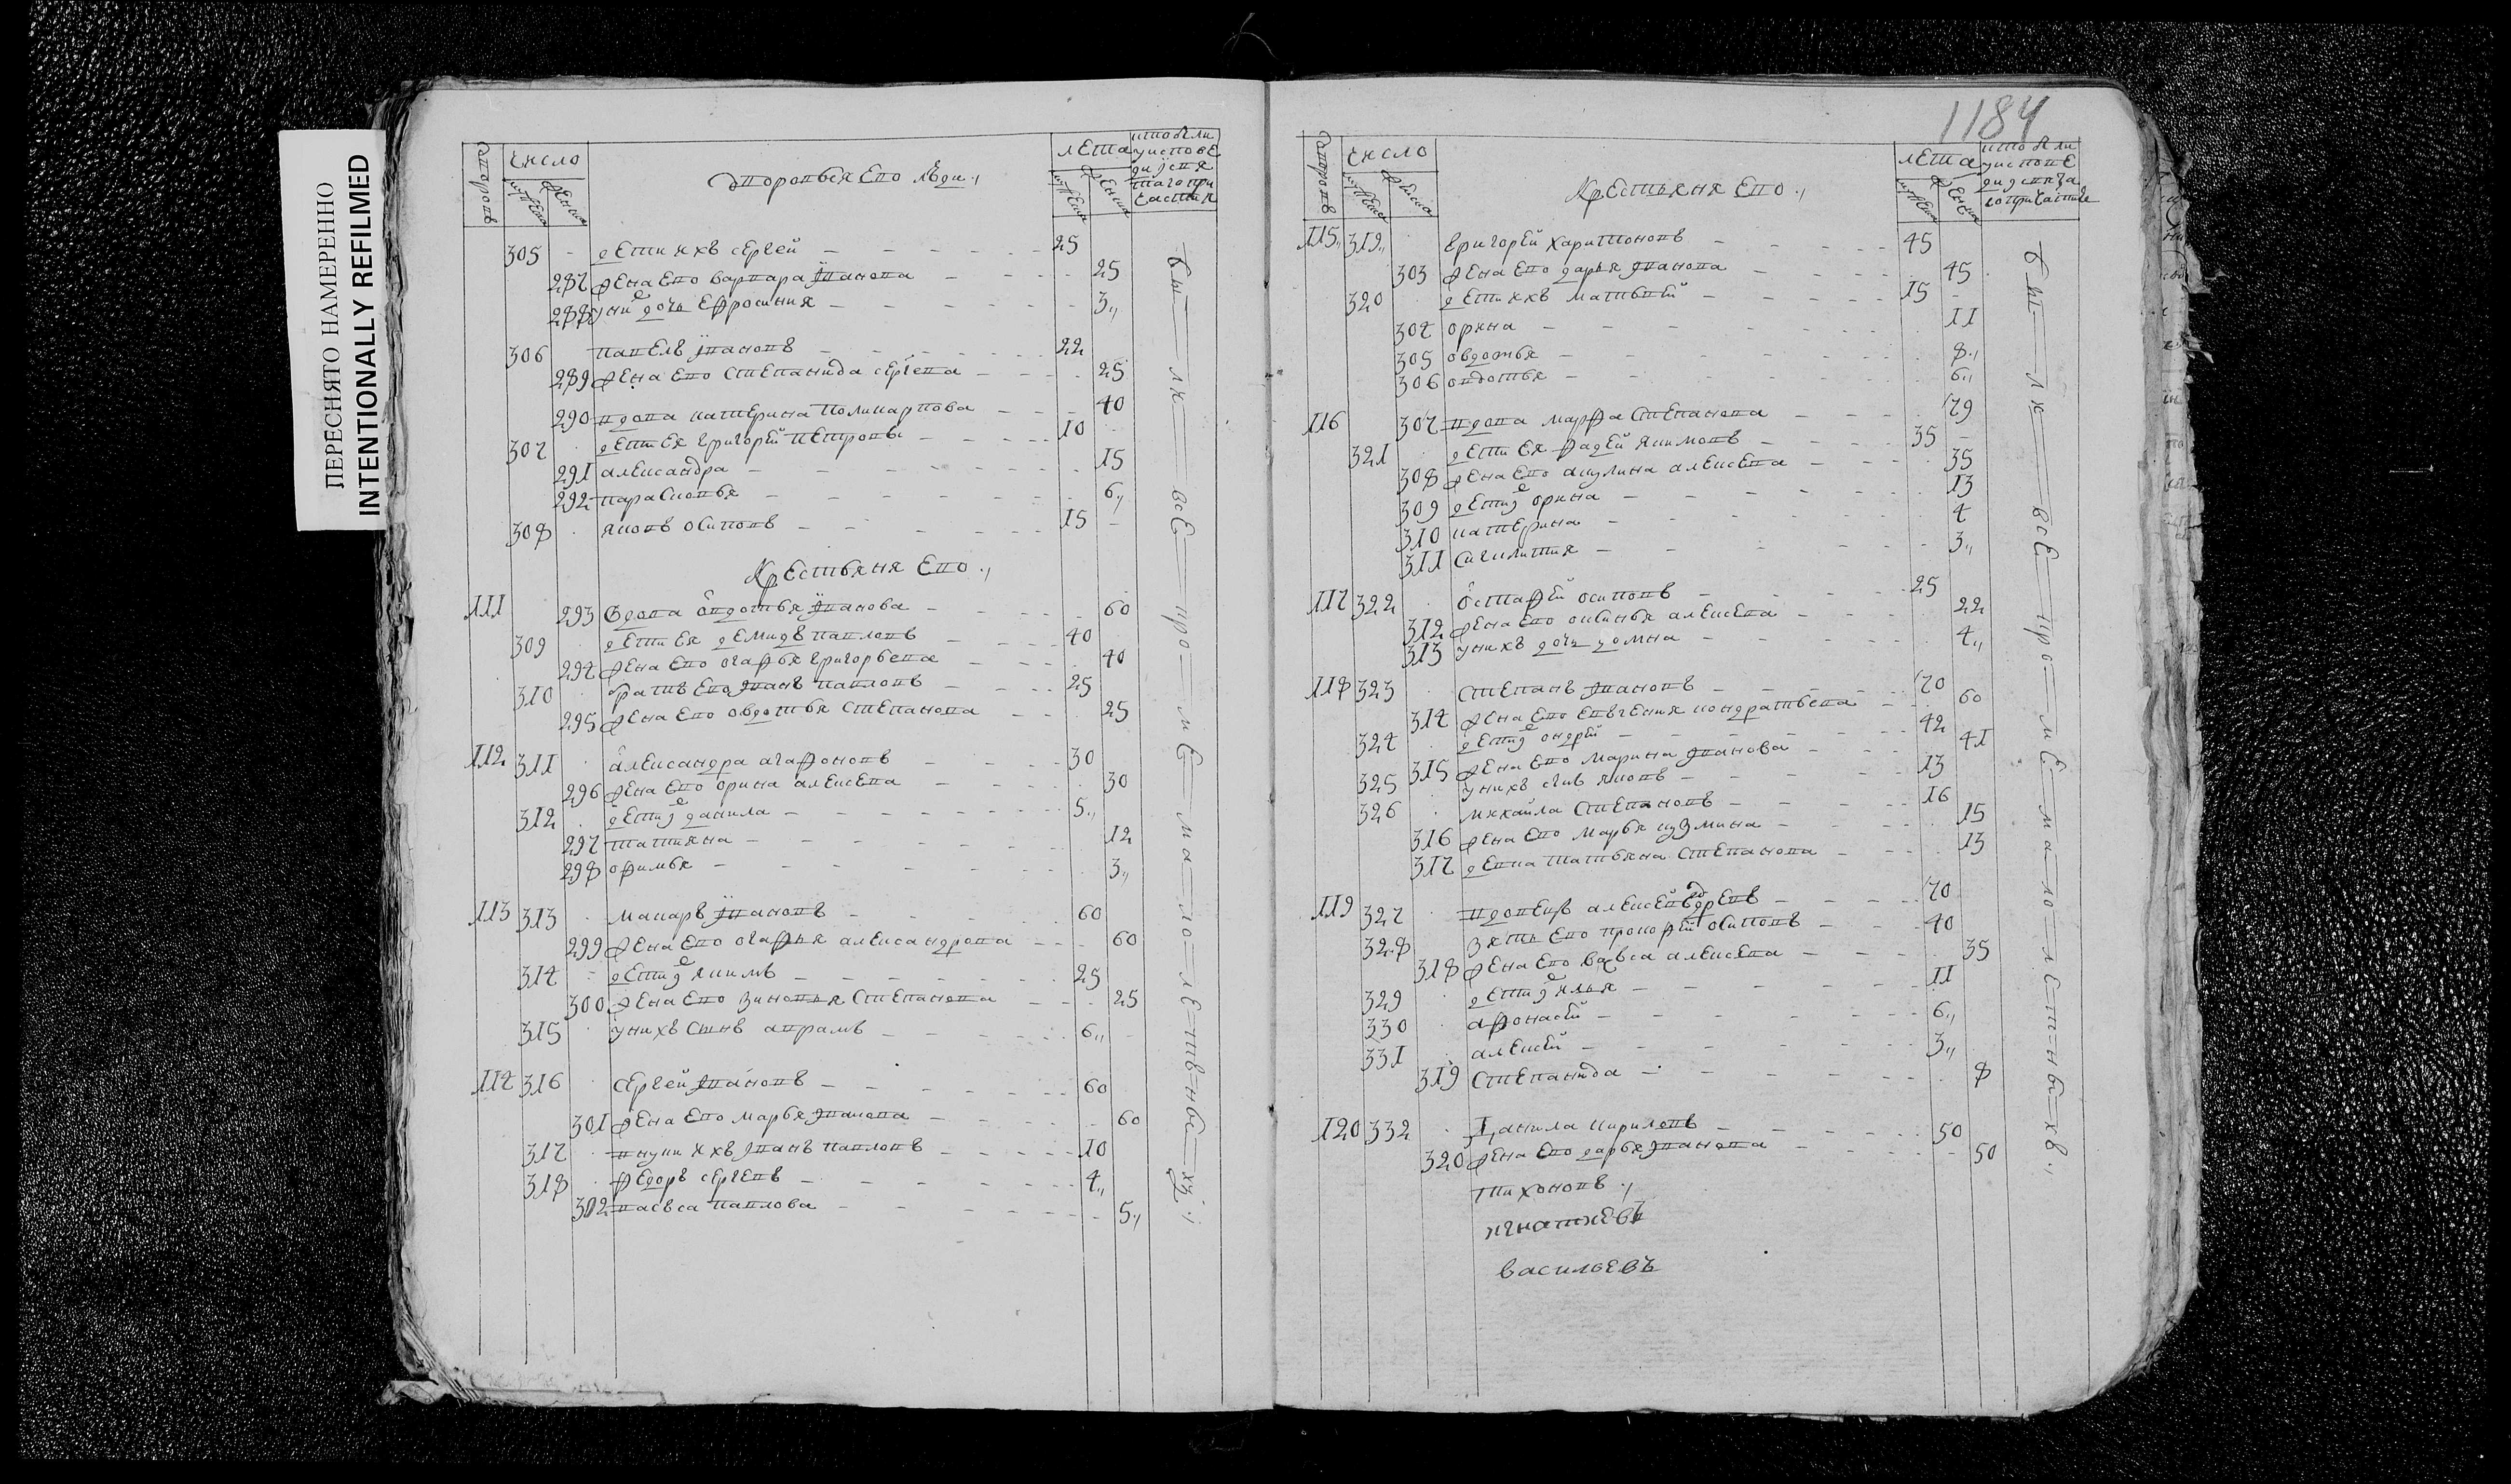 ПЕРЕСНЯТО НАМЕРЕННО
INTENTIONALLY REFILMED
дворовъ
число
мужеска
женска
дворовыя ево люди
лета
мужеска
женска
были у исповеди и святаго причастия
305 дети ихъ сергей 25
287 жена ево варвара иванова 25
288 у них дочь ефросиния 3
306 павелъ ивановъ 22
289 жена ево степанида сергева 25
290 вдова катерина поликарпова 40
307 дети ея григорей петровы 10
291 александра 15
292 парасковья 6
308 яковъ осиповъ 15
крестьяня ево
111 293 вдова овдотья иванова 60
309 дети ея демидъ павловъ 40
294 жена ево огафья григорьева 40
310 братъ ево иванъ павловъ 25
295 жена ево овдотья степанова 25
112 311 александра агафоновъ 30
296 жена ево орина алексева 30
312 дети данила 5
297 татияна 12
298 офимья 3
113 313 макаръ ивановъ 60
299 жена ево огафья александрова 60
314 дети якимъ 25
300 жена ево зиновья степанова 25
315 у нихъ сынъ аврамъ 6
114 316 сергей ивановъ 60
301 жена ево марья иванова 60
317 внуки ихъ иванъ павловъ 10
318 федоръ сергевъ 4
302 павлова 5
бы ли все про ме ма ло лет ны хъ
1184
дворовъ
число
мужеска
женска
крестьяня ево
лета
мужеска
женска
115 319 григорей харитоновъ 45
303 жена ево дарья иванова 45
320 дети ихъ матвей 15
304 орина 11
305 овдотья 8
306 овдотья 6
116 307 вдова марфа степанова 79
321 дети ея фадей якимовъ 35
308 жена ево акулина алексева 35
309 дети орина 13
310 катерина 4
311 3
117 322 остафей осиповъ 25
312 жена ево алексева 22
313 у нихъ дочь домна 4
118 323 степанъ ивановъ 70
314 жена ево евгения кондратьева 60
324 дети ондрей 42
315 жена ево марина иванова 41
325 у нихъ сынъ яковъ 13
326 михайла степановъ 16
316 жена ево марья кузмина 15
317 девка татьяна степанова 13
119 327 вдовецъ алексей 70
328 зять ево прокофей осиповъ 40
318 жена ево алексева 35
329 дети илья 11
330 афонасей 6
331 алексей 3
319 степанида 8
120 332 данила кириловъ 50
320 жена ево дарья иванова 50
тихоновъ
игнатиевъ
васильевъ
бы ли все про ме ма ло лет ны хъ